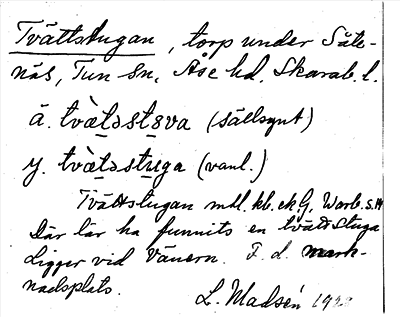 Tvättstugan, torp under Såte-
näs, Tun sn, Åse hd, Skarab. l.
ä. tvàtəstəva (sällsynt)
y. tvàtəstuga (vanl.)
Tvättstugan mtl. kb. ek G, Warb. s.
Där lär ha funnits en tvättstuga
Ligger vid Vänern. F. d. mark-
nadsplats.
L. Madsén